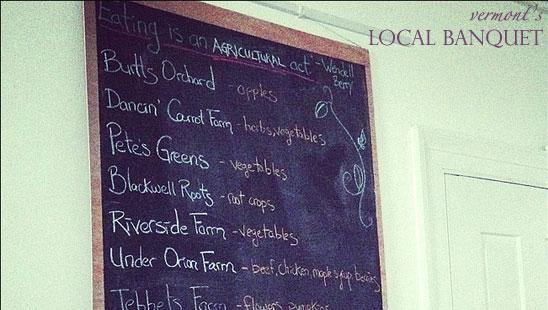 vermont's
LOCAL BANQUET
Eating is an AGRICULTURAL act - Wendell Berry
Burtts Orchard - apples
Dancin' Carrot Farm - herbs, vegetables
Petes Greens - vegetables
Blackwell Roots - root crops
Riverside Farm - vegetables
Under Orion Farm - beef, chicken, maple syrup, berries
Tebbets Farm - flowers, pumpkins